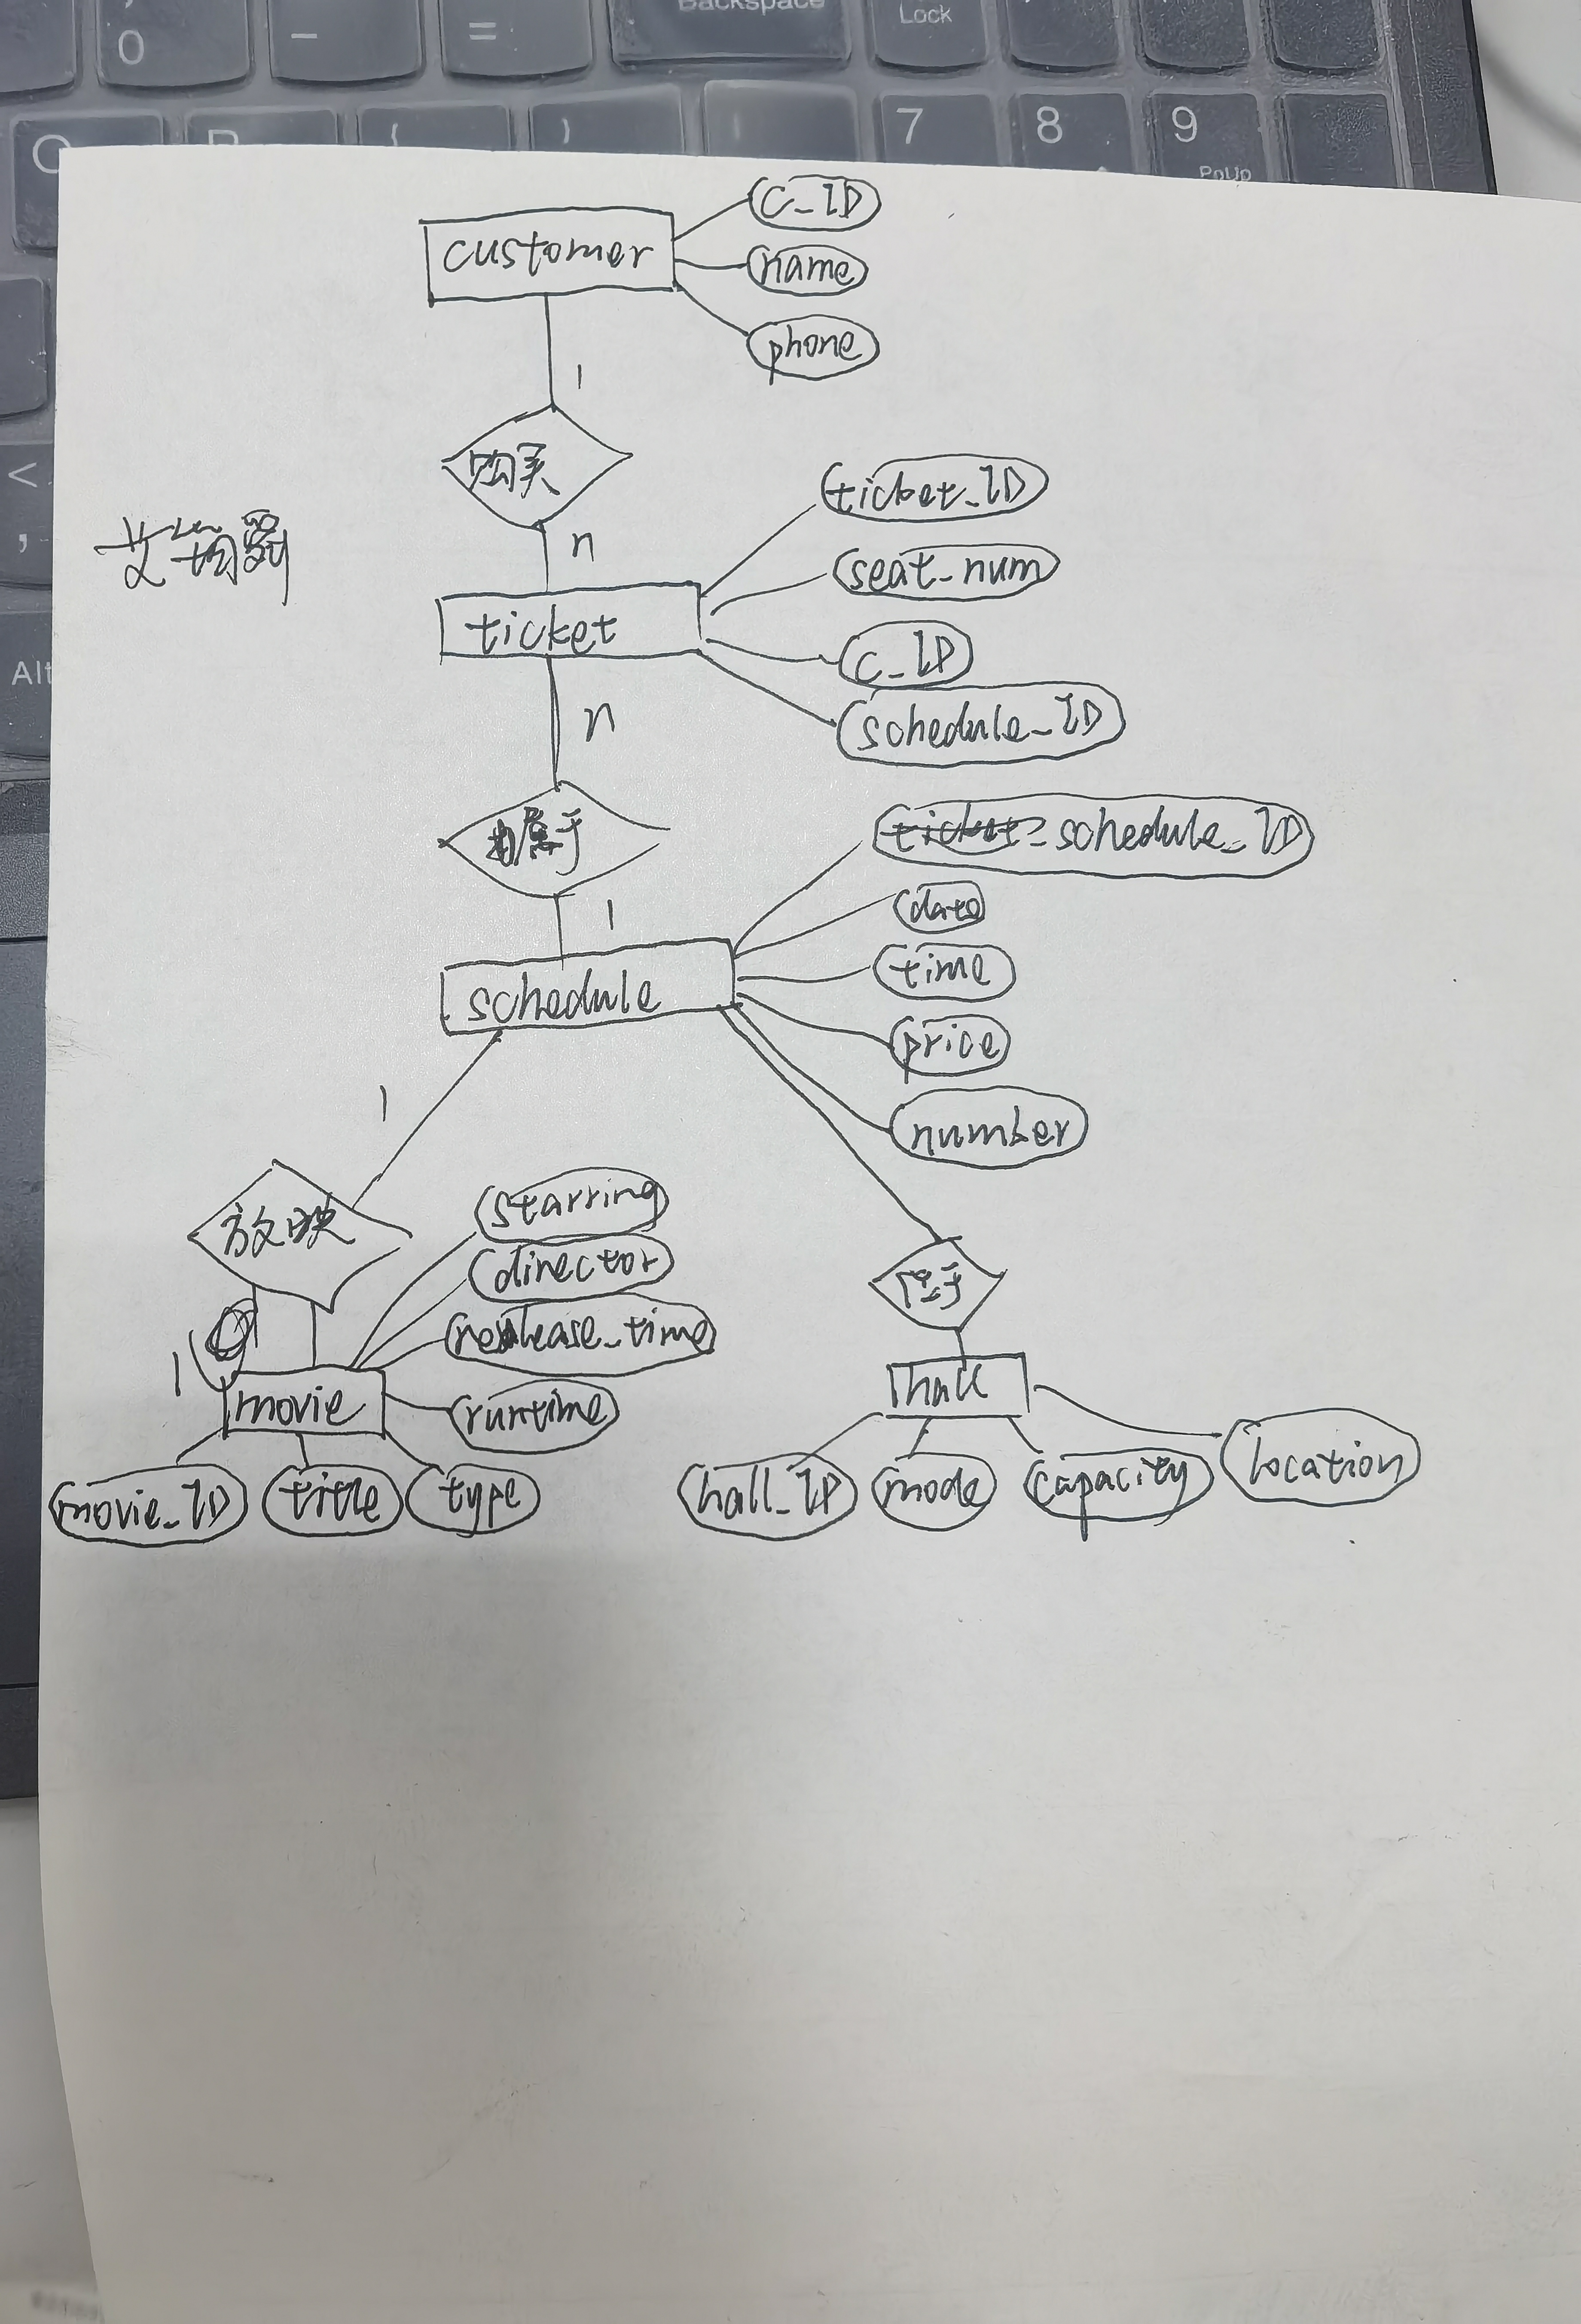 Backspace
Lock
0
-
=
7
8
9
PgUp
<
,
Alt
customer
C_ID
name
phone
1
购买
n
ticket
ticket_ID
seat_num
C_ID
schedule_ID
n
属于
1
schedule
schedule_ID
date
time
price
number
1
放映
starring
director
release_time
runtime
1
movie
movie_ID
title
type
位于
hall
hall_ID
mode
capacity
location